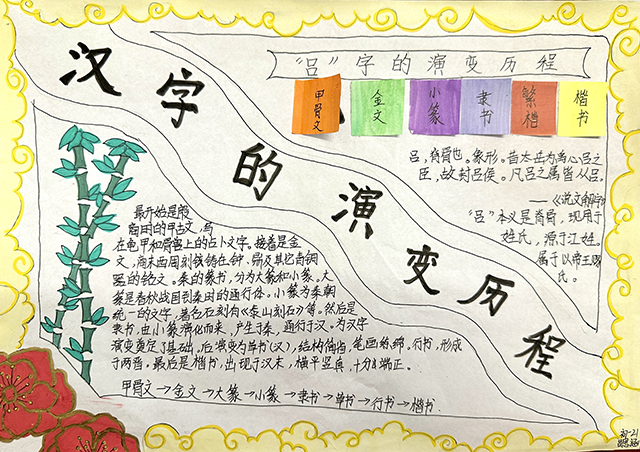 汉字的演变历程
"吕"字的演变历程
甲骨文
金文
小篆
隶书
繁楷
楷书
吕,脊骨也。象形。昔太岳为禹心吕之
臣,故封吕侯。凡吕之属皆从吕。
——《说文解字》
"吕"本义是脊骨,现用于
姓氏,源于江姓。
属于以帝王
氏。
最开始是殷
商用的甲古文,
在龟甲和骨上的占卜文字。接着是金
文,商末西周刻或铸在钟、鼎及其它青铜
器的铭文。秦的篆书,分为大篆和小篆。大
篆是春秋战国到秦时的通行体。小篆为秦朝
统一的文字,著名石刻有《泰山刻石》等。然后是
隶书,由小篆演化而来,产生于秦,通行于汉。为汉字
演变奠定了基础,后演变为草书(汉),结构简省,笔画
行书,形成
于两晋。最后是楷书,出现于汉末,横平竖直,十分端正。
甲骨文→金文→大篆→小篆→隶书→草书→行书→楷书